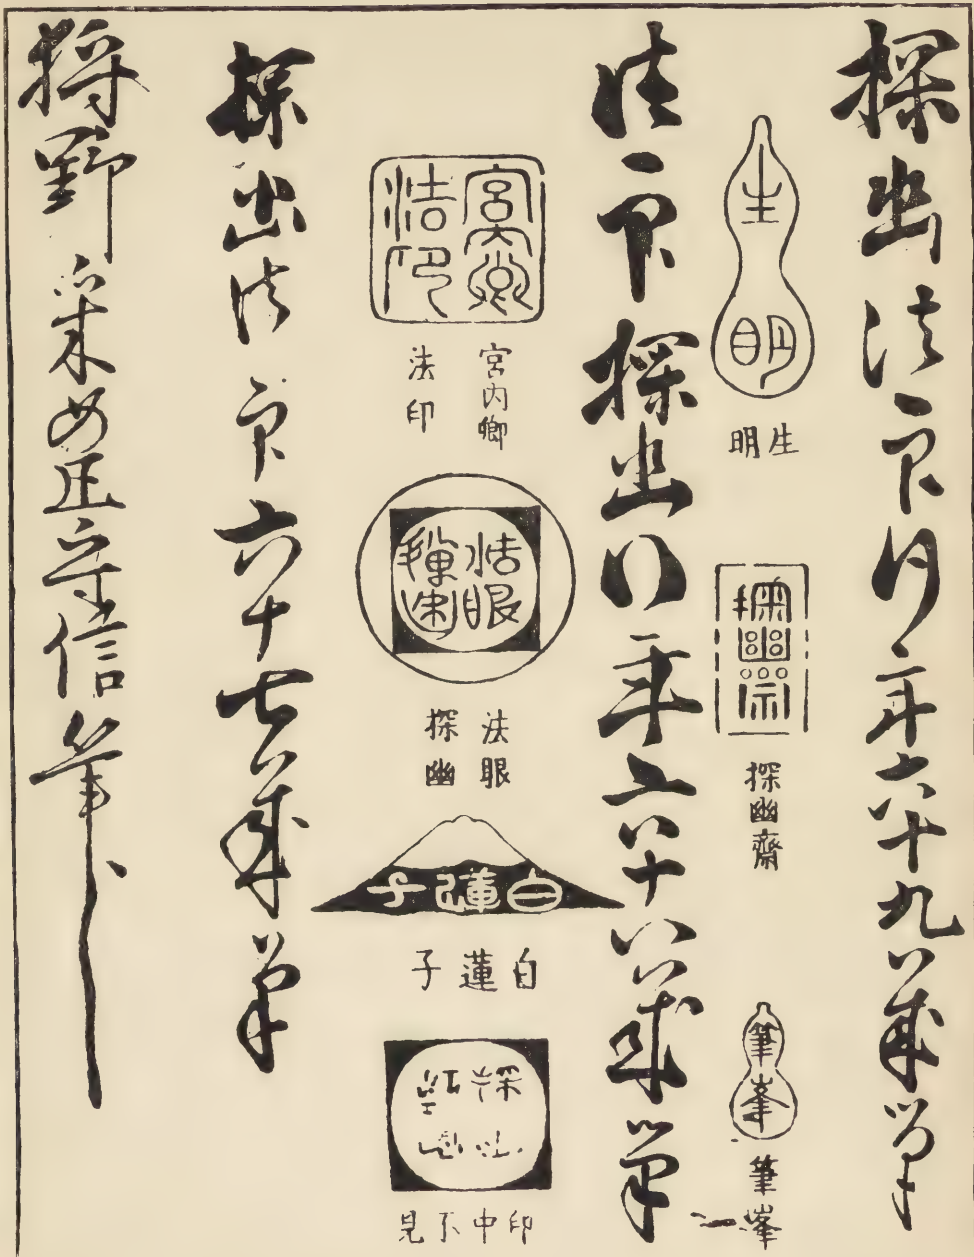 探幽法印行年六十九歳筆
生明
生明
探幽齋
探幽齋
筆峯
筆峯
法印探幽行年六十八歳筆
宮内卿
法印
宮内卿
法印
法眼
探幽
法眼
探幽
白蓮子
白蓮子
印中不見
探幽法印六十七歳筆
狩野采女正守信筆